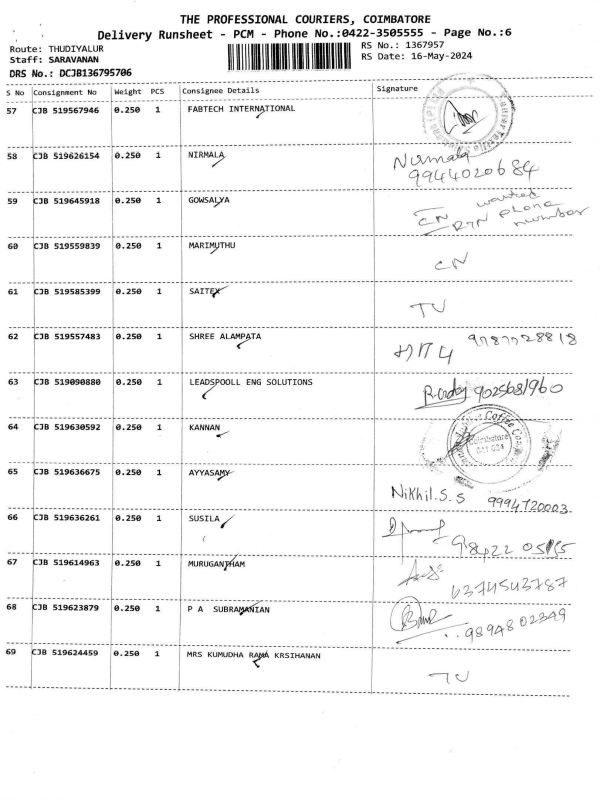 THE PROFESSIONAL COURIERS, COIMBATORE
Delivery Runsheet - PCM - Phone No.:0422-3505555 - Page No.:6
Route: THUDIYALUR
RS No.: 1367957
Staff: SARAVANAN
RS Date: 16-May-2024
DRS No.: DCJB136795706
S No Consignment No Weight PCS Consignee Details Signature
57 CJB 519567946 0.250 1 FABTECH INTERNATIONAL
58 CJB 519626154 0.250 1 NIRMALA Nirmala
9944020684
59 CJB 519645918 0.250 1 GOWSALYA CN wanted
RTN phone
number
60 CJB 519559839 0.250 1 MARIMUTHU CN
61 CJB 519585399 0.250 1 SAITEX TU
62 CJB 519557483 0.250 1 SHREE ALAMPATA 9787728818
63 CJB 519090880 0.250 1 LEADSPOOLL ENG SOLUTIONS 9025681960
64 CJB 519630592 0.250 1 KANNAN Coffee
Coimbatore
65 CJB 519636675 0.250 1 AYYASAMY Nikhil.S.S 9994720003
66 CJB 519636261 0.250 1 SUSILA 98422
67 CJB 519614963 0.250 1 MURUGANTHAM 6374543787
68 CJB 519623879 0.250 1 P A SUBRAMANIAN 9894802349
69 CJB 519624459 0.250 1 MRS KUMUDHA RAMA KRSIHANAN TU